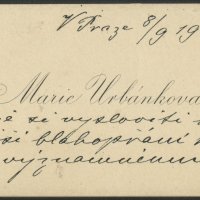 V Praze 8/9 19
Marie Urbánkova
si vysloviti
ší blahopřání
významnému